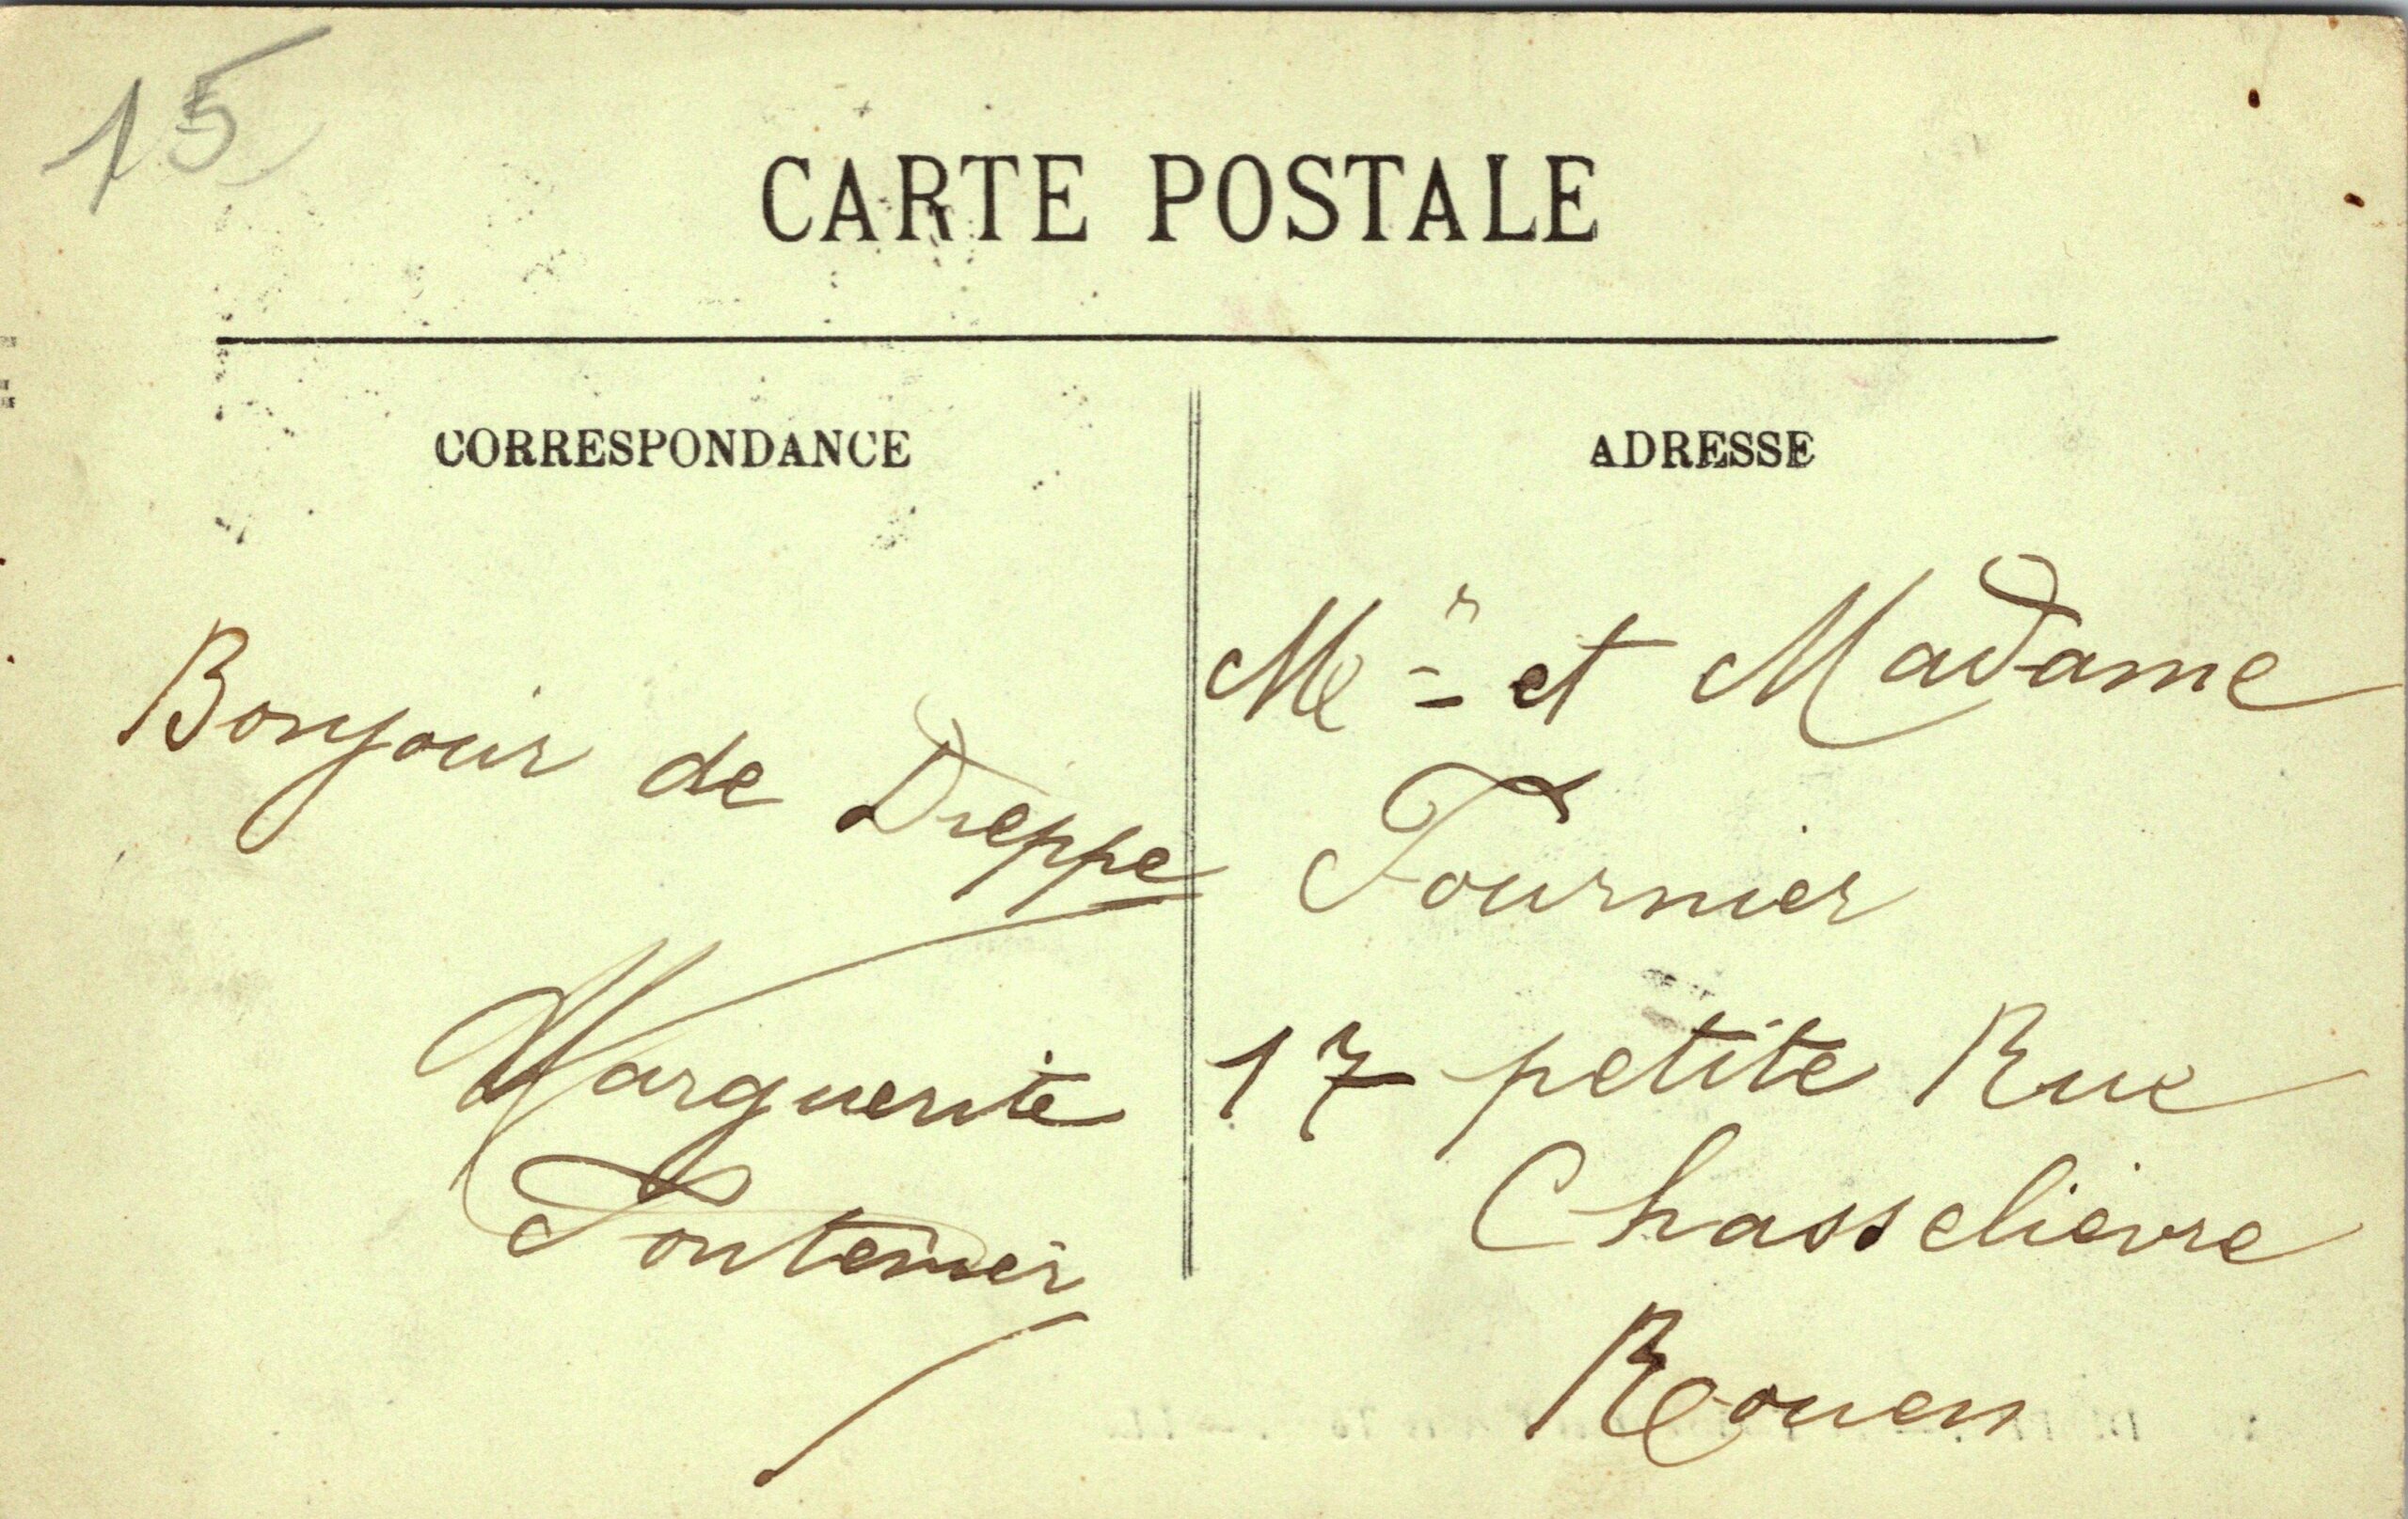 15
CARTE POSTALE
CORRESPONDANCE
Bonjour de Dieppe
Marguerite
ADRESSE
Mr et Madame
Fournier
17 petite Rue
Chasselièvre
Rouen